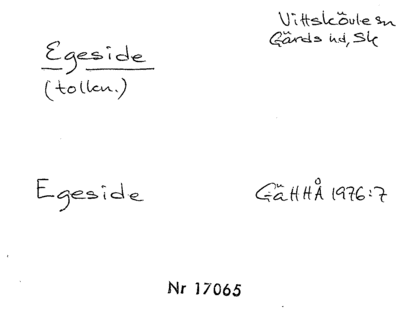 Vittskövle sn
Gärds hd, Sk
Egeside
(tolkn.)
Egeside
GäHHÅ 1976:7
Nr 17065